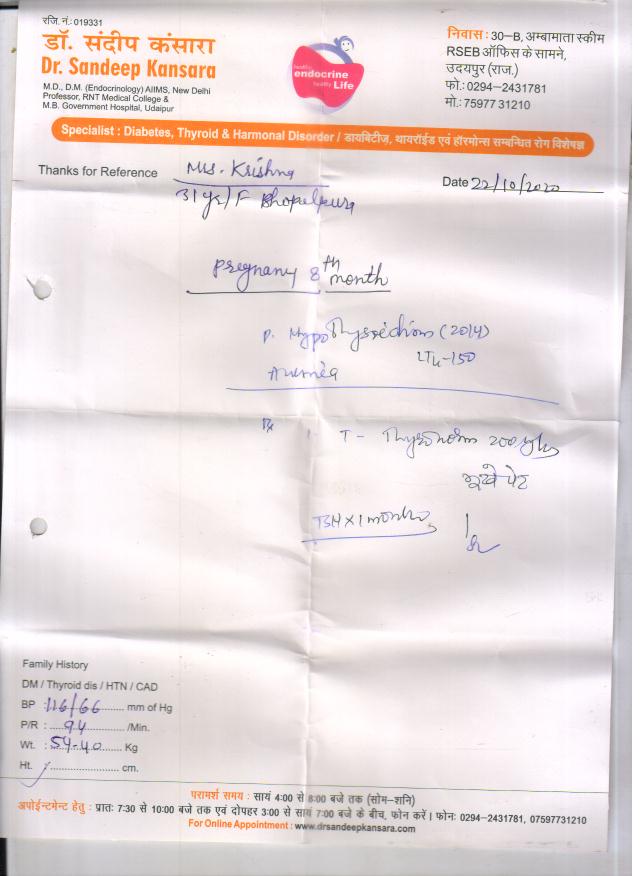 रजि. नं.: 019331
डॉ. संदीप कंसारा
Dr. Sandeep Kansara
M.D., D.M. (Endocrinology) AIIMS, New Delhi
Professor, RNT Medical College &
M.B. Government Hospital, Udaipur
healthy
endocrine
healthy Life
निवास : 30-B, अम्बामाता स्कीम
RSEB ऑफिस के सामने,
उदयपुर (राज.)
फो.: 0294-2431781
मो.: 75977 31210
Specialist : Diabetes, Thyroid & Harmonal Disorder / डायबिटीज, थायरॉईड एवं हॉरमोन्स सम्बन्धित रोग विशेषज्ञ
Thanks for Reference Mrs. Krishna
Date 22/10/2020
31 yr/F Bhopalpura
Pregnany 8th month
P. Hypothyroidism (2014)
LTu-150
Anemia
Rx 1- T- Thyronorm 200
भूखे पेट
TSH x 1 month
Family History
DM / Thyroid dis / HTN / CAD
BP : 116/66 mm of Hg
P/R : 94 /Min.
Wt. : 54.40 Kg
Ht. cm.
परामर्श समय : सायं 4:00 से 8:00 बजे तक (सोम-शनि)
अपोईन्टमेन्ट हेतु : प्रातः 7:30 से 10:00 बजे तक एवं दोपहर 3:00 से सायं 7:00 बजे के बीच, फोन करें। फोनः 0294-2431781, 07597731210
For Online Appointment : www.drsandeepkansara.com